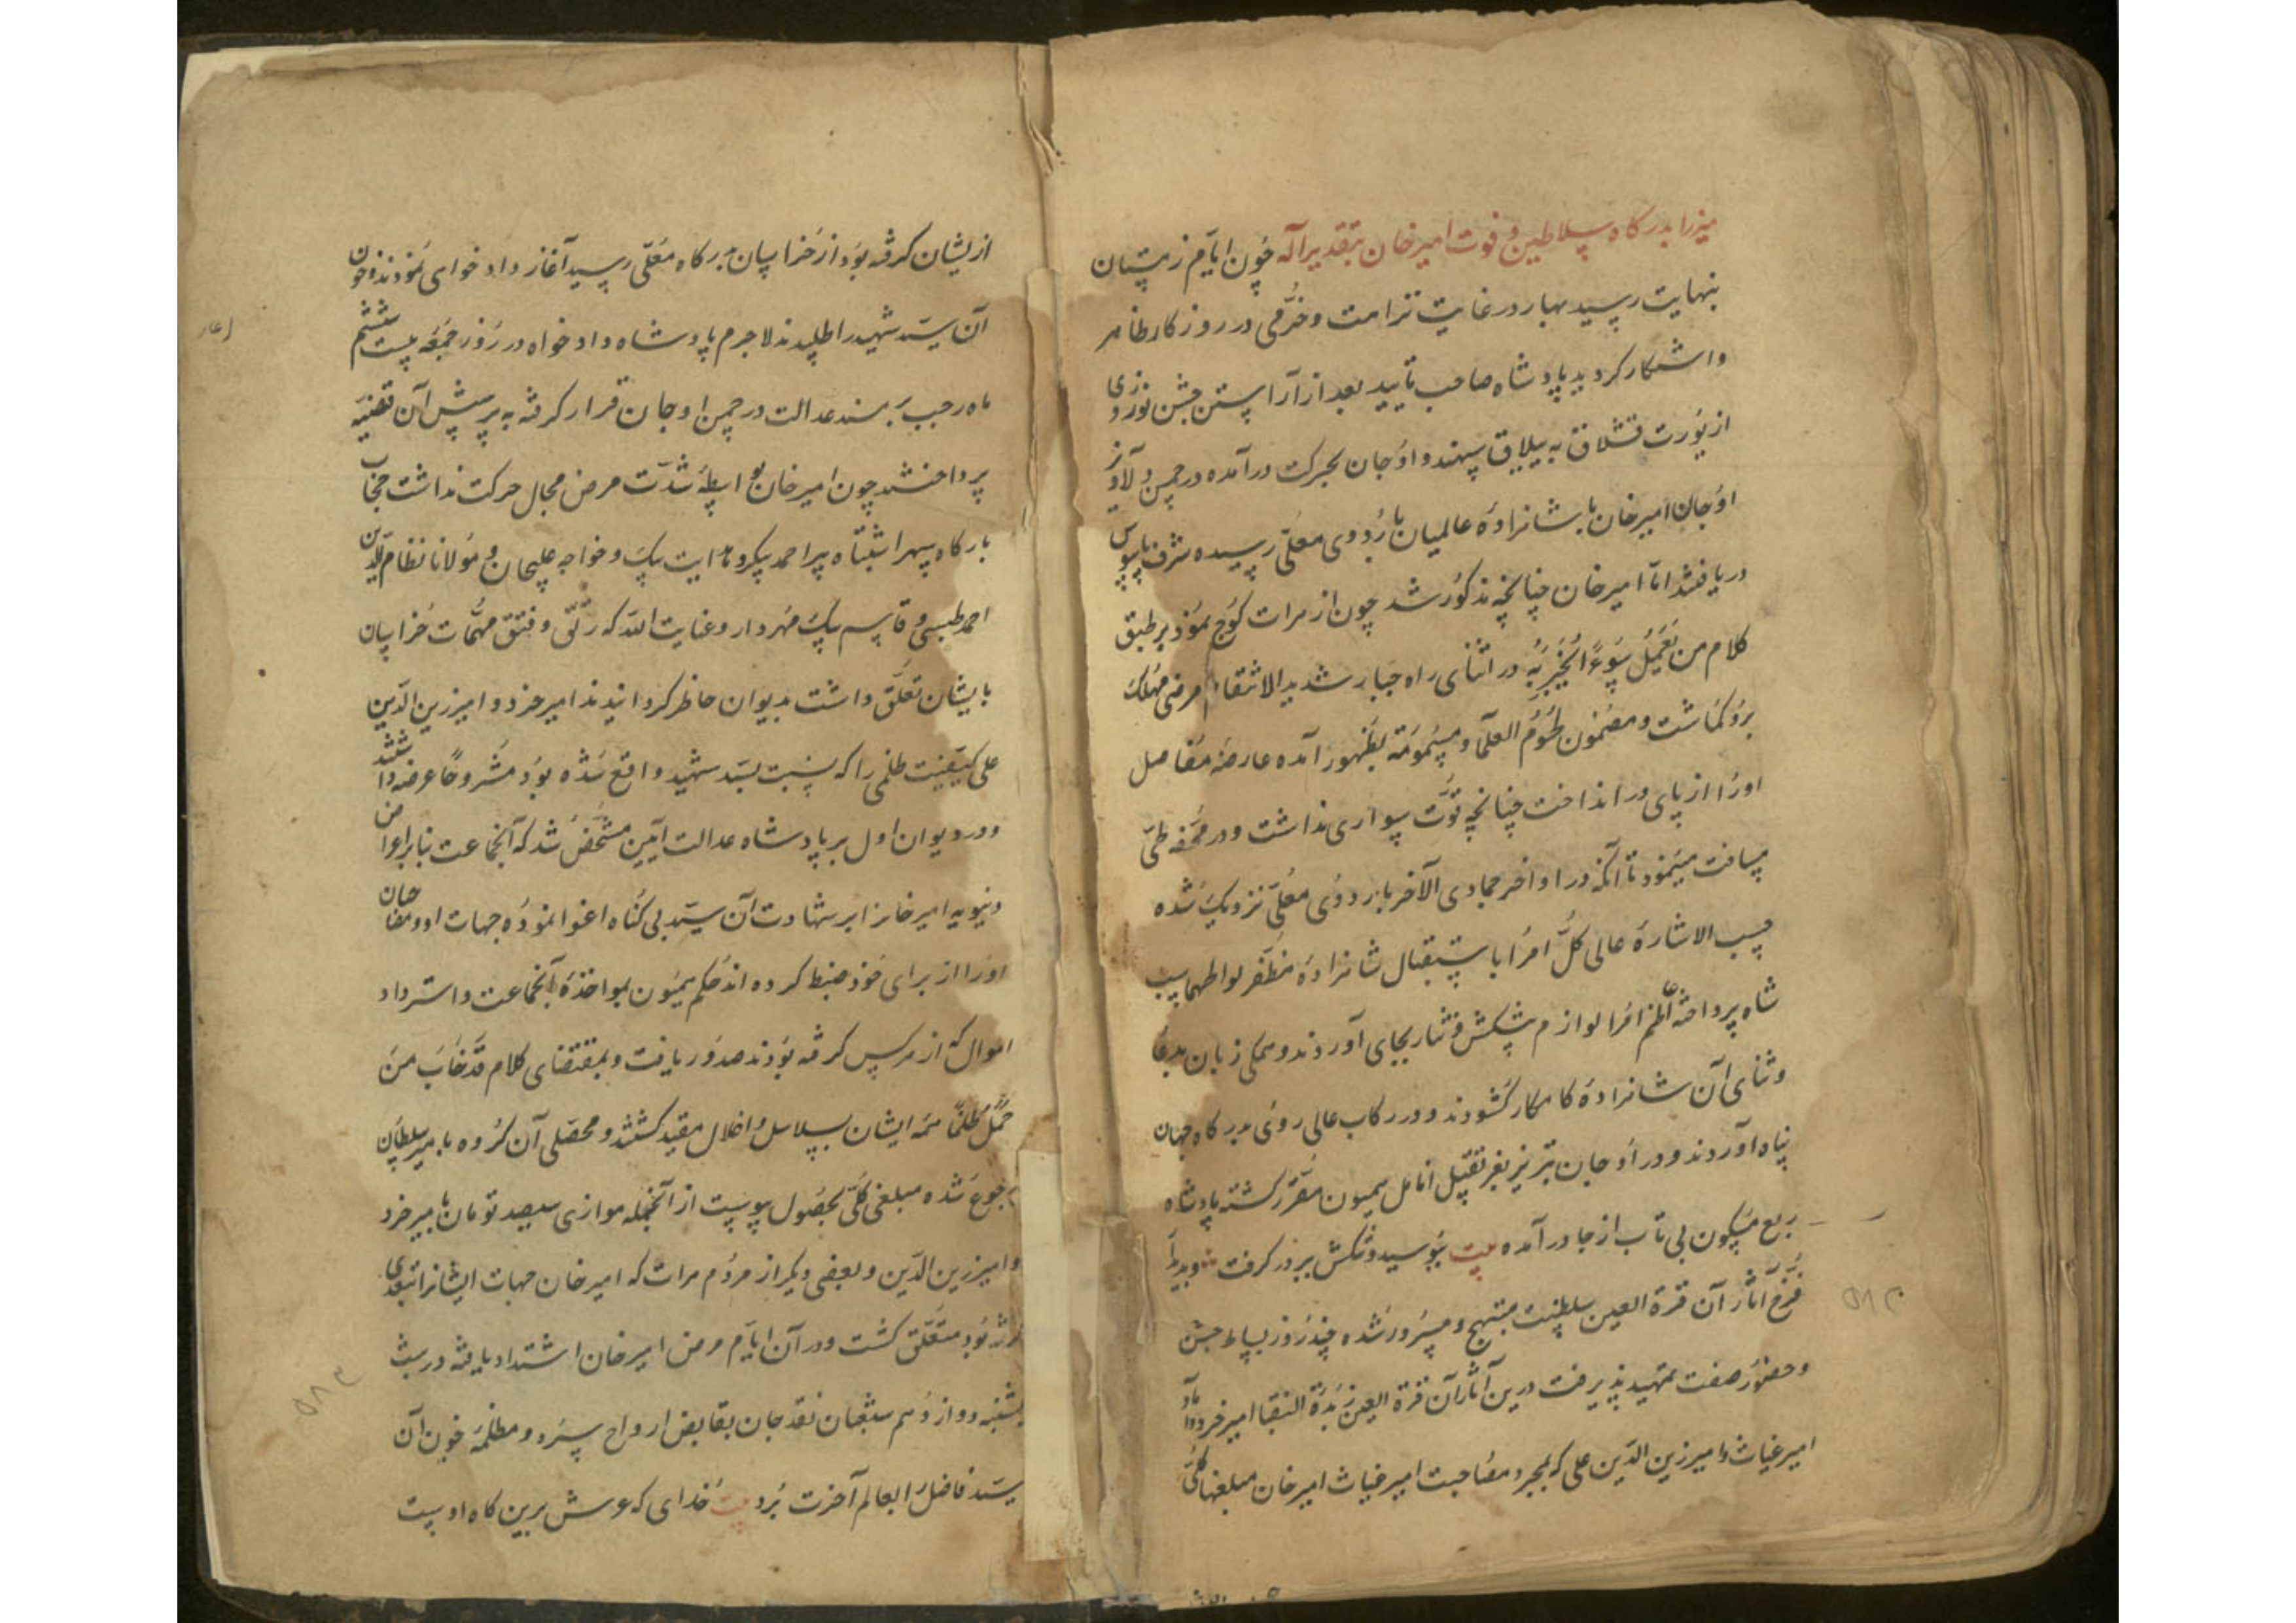 میرزا بدرگاه سلاطین و فوت امیرخان بتقدیر آله چون ایام زمستان
بنهایت رسید بهار در غایت نزاهت و خرمی در روزگار ظاهر
و آشکار گردید پادشاه صاحب تایید بعد از آراستن جشن نوروزی
از یورت قشلاق به ییلاق سهند و اوجان بحرکت درآمده در چمن دلاویز
اوجان امیرخان با شاهزادهٔ عالمیان باردوی معلّی رسیده شرف پابوس
دریافتند امّا امیرخان چنانچه مذکور شد چون از هرات کوچ نمود بر طبق
کلام من یعمل سوءاً یجز به در اثنای راه جبار شدید الانتقام مرضی مهلک
برو گماشت و مضمون لحوم العلما مسمومة بظهور آمده عارضهٔ مفاصل
او را از پای در انداخت چنانچه قوّت سواری نداشت و در محفّه طیّ
مسافت مینمود تا آنکه در اواخر جمادی الآخر باردوی معلّی نزدیک شده
حسب الاشارهٔ عالی کلّ امرا باستقبال شاهزادهٔ مظفّر لوا طهماسب
شاه پرداخته اعاظم امرا لوازم پیشکش و نثار بجای آوردند و همگی زبان بدعا
و ثنای آن شاهزادهٔ کامکار گشودند و در رکاب عالی روی بدرگاه جهان
پناه آوردند و در اوجان تبریز بعزّ تقبیل انامل همیون مقرّر گشته پادشاه
ربع مسکون بی تاب از جا درآمده بیت ببوسید و تنگش ببر در گرفت و بدیدار
فرّخ آثار آن قرة العین سلطنت مبتهج و مسرور شده چند روز بساط جشن
و حضور صفت تمهید پذیرفت درین آثار آن قرة العین زبدة النقبا امیر خرد
امیر غیاث و امیر زین الدّین علی که بمجرد مصاحبت امیر غیاث امیرخان مبلغها کلّی
از یشان گرفته بود از خراسان بدرگاه معلّی رسید آغاز دادخواهی نمودند و خون
آن سیّد شهید را طلبیدند لاجرم پادشاه دادخواه در روز جمعه بیست ششم
ماه رجب بر مسند عدالت در چمن اوجان قرار گرفته به پرسش آن قضیه
پرداختند چون امیرخان بواسطهٔ شدّت مرض مجال حرکت نداشت حجّاب
بارگاه سپهر اشتباه پیر احمد بیک و هدایت بیک و خواجه علیجان و مولانا نظام الدین
احمد طبسی و قاسم بیک مهردار و عنایت الله که رتق و فتق مهمّات خراسان
بایشان تعلّق داشت بدیوان حاظر گردانیدند امیر خرد و امیر زین الدّین
علی کیفیّت ظلمی را که نسبت بسیّد شهید واقع شده بود مشروحاً عرضه داشتند
و در دیوان اول بر پادشاه عدالت آیین مشخّص شد که آنجماعت بنابر اعراض
دنیویه امیرخان را بر شهادت آن سیّد بی گناه اغوا نموده جهات او و
او را از برای خود ضبط کرده اند حکم همیون بمواخذهٔ آنجماعت و استرداد
اموال که از هرکس گرفته بودند صدور یافت و بمقتضای کلام قد خاب من
حمل ظلماً همه ایشان بسلاسل و اغلال مقید گشتند و محصّلی آن گروه بامیر سلطان
رجوع شده مبلغی کلّی بحصول پیوست از آنجمله موازی سیصد تومان بامیر خرد
و امیر زین الدّین و بعضی دیگر از مردم هرات که امیرخان جهات ایشانرا بتعدّی
گرفته بود متعلّق گشت و در آن ایّام مرض امیرخان اشتداد یافته در شب
شنبه دوازدهم شعبان نقد جان بقابض ارواح سپرد و مظلمهٔ خون آن
سیّد فاضل را بعالم آخرت برد بیت خدای که عرش برین گاه اوست